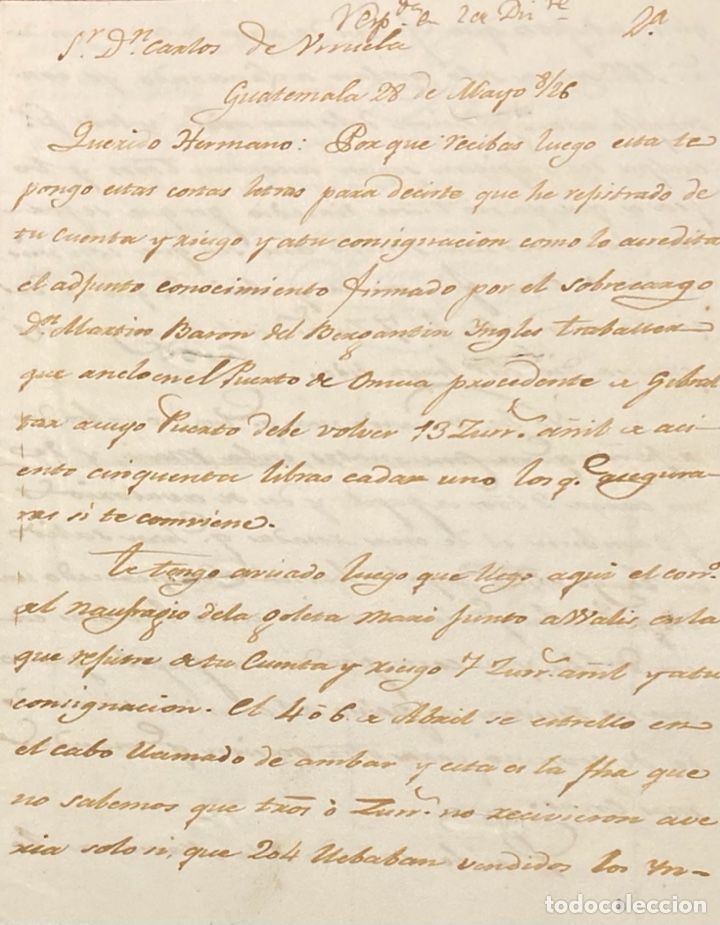 Resp.da en 2 de Di.re 2.a
S.r D.n Carlos de Vrruela
Guatemala 28 de Mayo 8/26
Querido Hermano: Porque recibas luego esta te
pongo estas cortas letras para decirte que he rejistrado de
tu cuenta y riesgo y atu consignacion como lo acredita
el adjunto conocimiento firmado por el sobrecargo
D.n Martin Baron del Bergantin Yngles
que anclo en el Puerto de Omoa procedente de Gibral
tar acuyo Puerto debe volver 13 Zurr.s añil de aci
ento cinquenta libras cada uno los q.e asegura-
ras si te conviene.
Te tengo avisado luego que llego aqui el con.o
el naufragio dela goleta Mari junto a Walis, en la
que rejitre de tu Cuenta y riesgo 7 Zurr.s añil y atu
consignacion. El 4 ó 6 de Abril se estrello en
el cabo llamado de ambar y esta es la fha que
no sabemos que ó Zurr.s no recivieron ave
ria solo si, que 204 llebaban vendidos los Yn-
todocoleccion.net